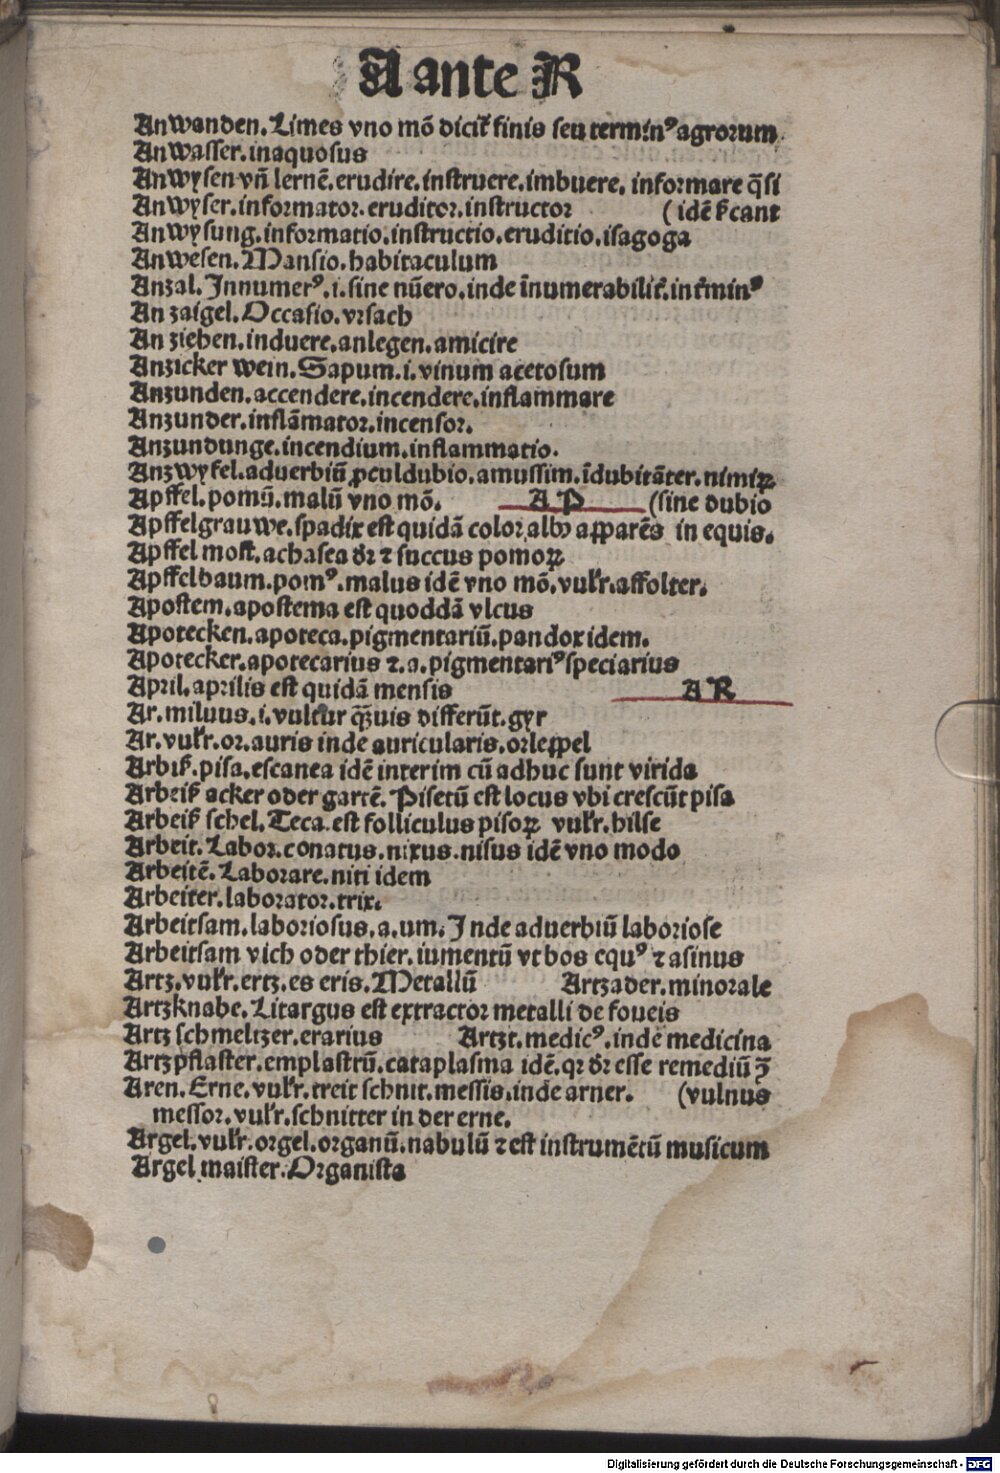 A ante R
Anwanden. Limes vno mõ dicit̃ finis seu termin⁹ agrorum
Anwasser. inaquosus
Anwysen vñ lernẽ. erudire. instruere. imbuere. informare q̃si
Anwyser. informator. eruditor. instructor (idẽ s̃cant
Anwysung. informatio. instructio. eruditio. isagoga
Anwesen. Mansio. habitaculum
Anzal. Innumer⁹. i. sine nũero. inde ĩnumerabilit̃. int̃min⁹
An zaigel. Occasio. vrsach
An ziehen. induere. anlegen. amicire
Anzicker wein. Sapum. i. vinum acetosum
Anzunden. accendere. incendere. inflammare
Anzunder. inflãmator. incensor.
Anzundunge. incendium. inflammatio.
Anzwyfel. aduerbiũ ꝓculdubio. amussim. ĩdubitãter. nimiꝝ
Apffel. pomũ. malũ vno mõ. A P (sine dubio
Apffelgrauwe. spadix est quidã color albꝰ apparẽs in equis.
Apffel most. achasea dr̃ ⁊ succus pomoꝝ
Apffelbaum. pom⁹. malus idẽ vno mõ. vulr̃. affolter.
Apostem. apostema est quoddã vlcus
Apotecken. apoteca. pigmentariũ. pandox idem.
Apotecker. apotecarius ⁊. a. pigmentari⁹ speciarius
April. aprilis est quidã mensis A R
Ar. miluus. i. vultur q̃uis differũt. gyr
Ar. vulr̃. or. auris inde auricularis. orleppel
Arbis̃. pisa. escanea idẽ interim cũ adhuc sunt virida
Arbeis̃ acker oder gartẽ. Pisetũ est locus vbi crescũt pisa
Arbeis̃ schel. Teca. est folliculus pisoꝝ vulr̃. hilse
Arbeit. Labor. conatus. nixus. nisus idẽ vno modo
Arbeitẽ. Laborare. niti idem
Arbeiter. laborator. trix.
Arbeitsam. laboriosus. a. um. Inde aduerbiũ laboriose
Arbeitsam vich oder thier. iumentũ vt bos equ⁹ ⁊ asinus
Artz. vulr̃. ertz. es eris. Metallũ Artzader. minorale
Artzknabe. Litargus est extractor metalli de foueis
Artz schmeltzer. erarius Artzt. medic⁹. inde medicina
Artzpflaster. emplastrũ. cataplasma idẽ. qꝛ dr̃ esse remediũ ꝯ̃
Aren. Erne. vulr̃. treit schnit. messis. inde arner. (vulnus
messor. vulr̃. schnitter in der erne.
Argel. vulr̃. orgel. organũ. nabulũ ⁊ est instrumẽtũ musicum
Argel maister. Organista
Digitalisierung gefördert durch die Deutsche Forschungsgemeinschaft - DFG